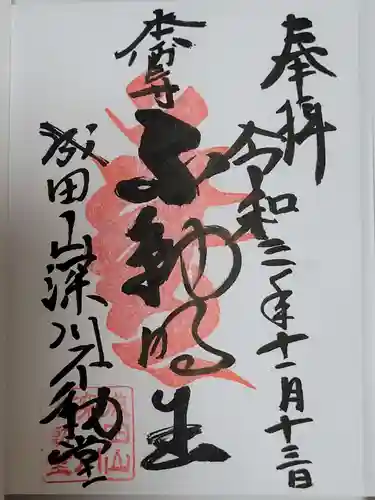 奉拝
令和二年十一月十三日
本尊
不動明王
成田山深川不動堂